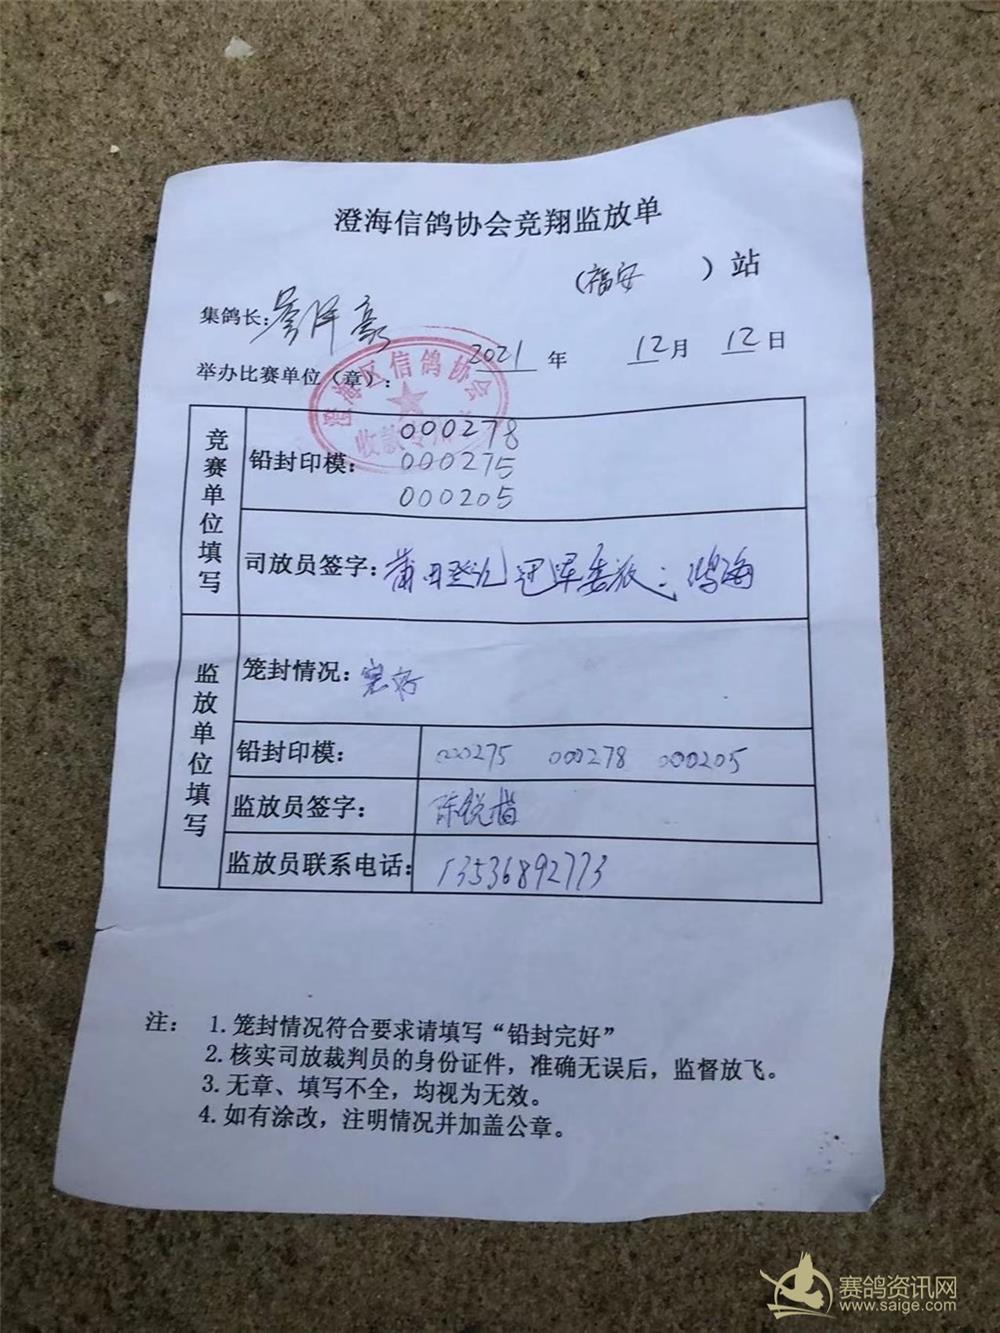 澄海信鸽协会竞翔监放单
（福安 ）站
集鸽长：
举办比赛单位（章）： 2021 年 12 月 12 日
澄海区信鸽协会
收款专用章
竞赛单位填写
铅封印模：
000278
000275
000205
司放员签字：莆田 冠军 鸿海
监放单位填写
笼封情况：完好
铅封印模： 000275 000278 000205
监放员签字：陈锐
监放员联系电话： 13536892773
注： 1.笼封情况符合要求请填写“铅封完好”
2.核实司放裁判员的身份证件，准确无误后，监督放飞。
3.无章、填写不全，均视为无效。
4.如有涂改，注明情况并加盖公章。
赛鸽资讯网
www.saige.com